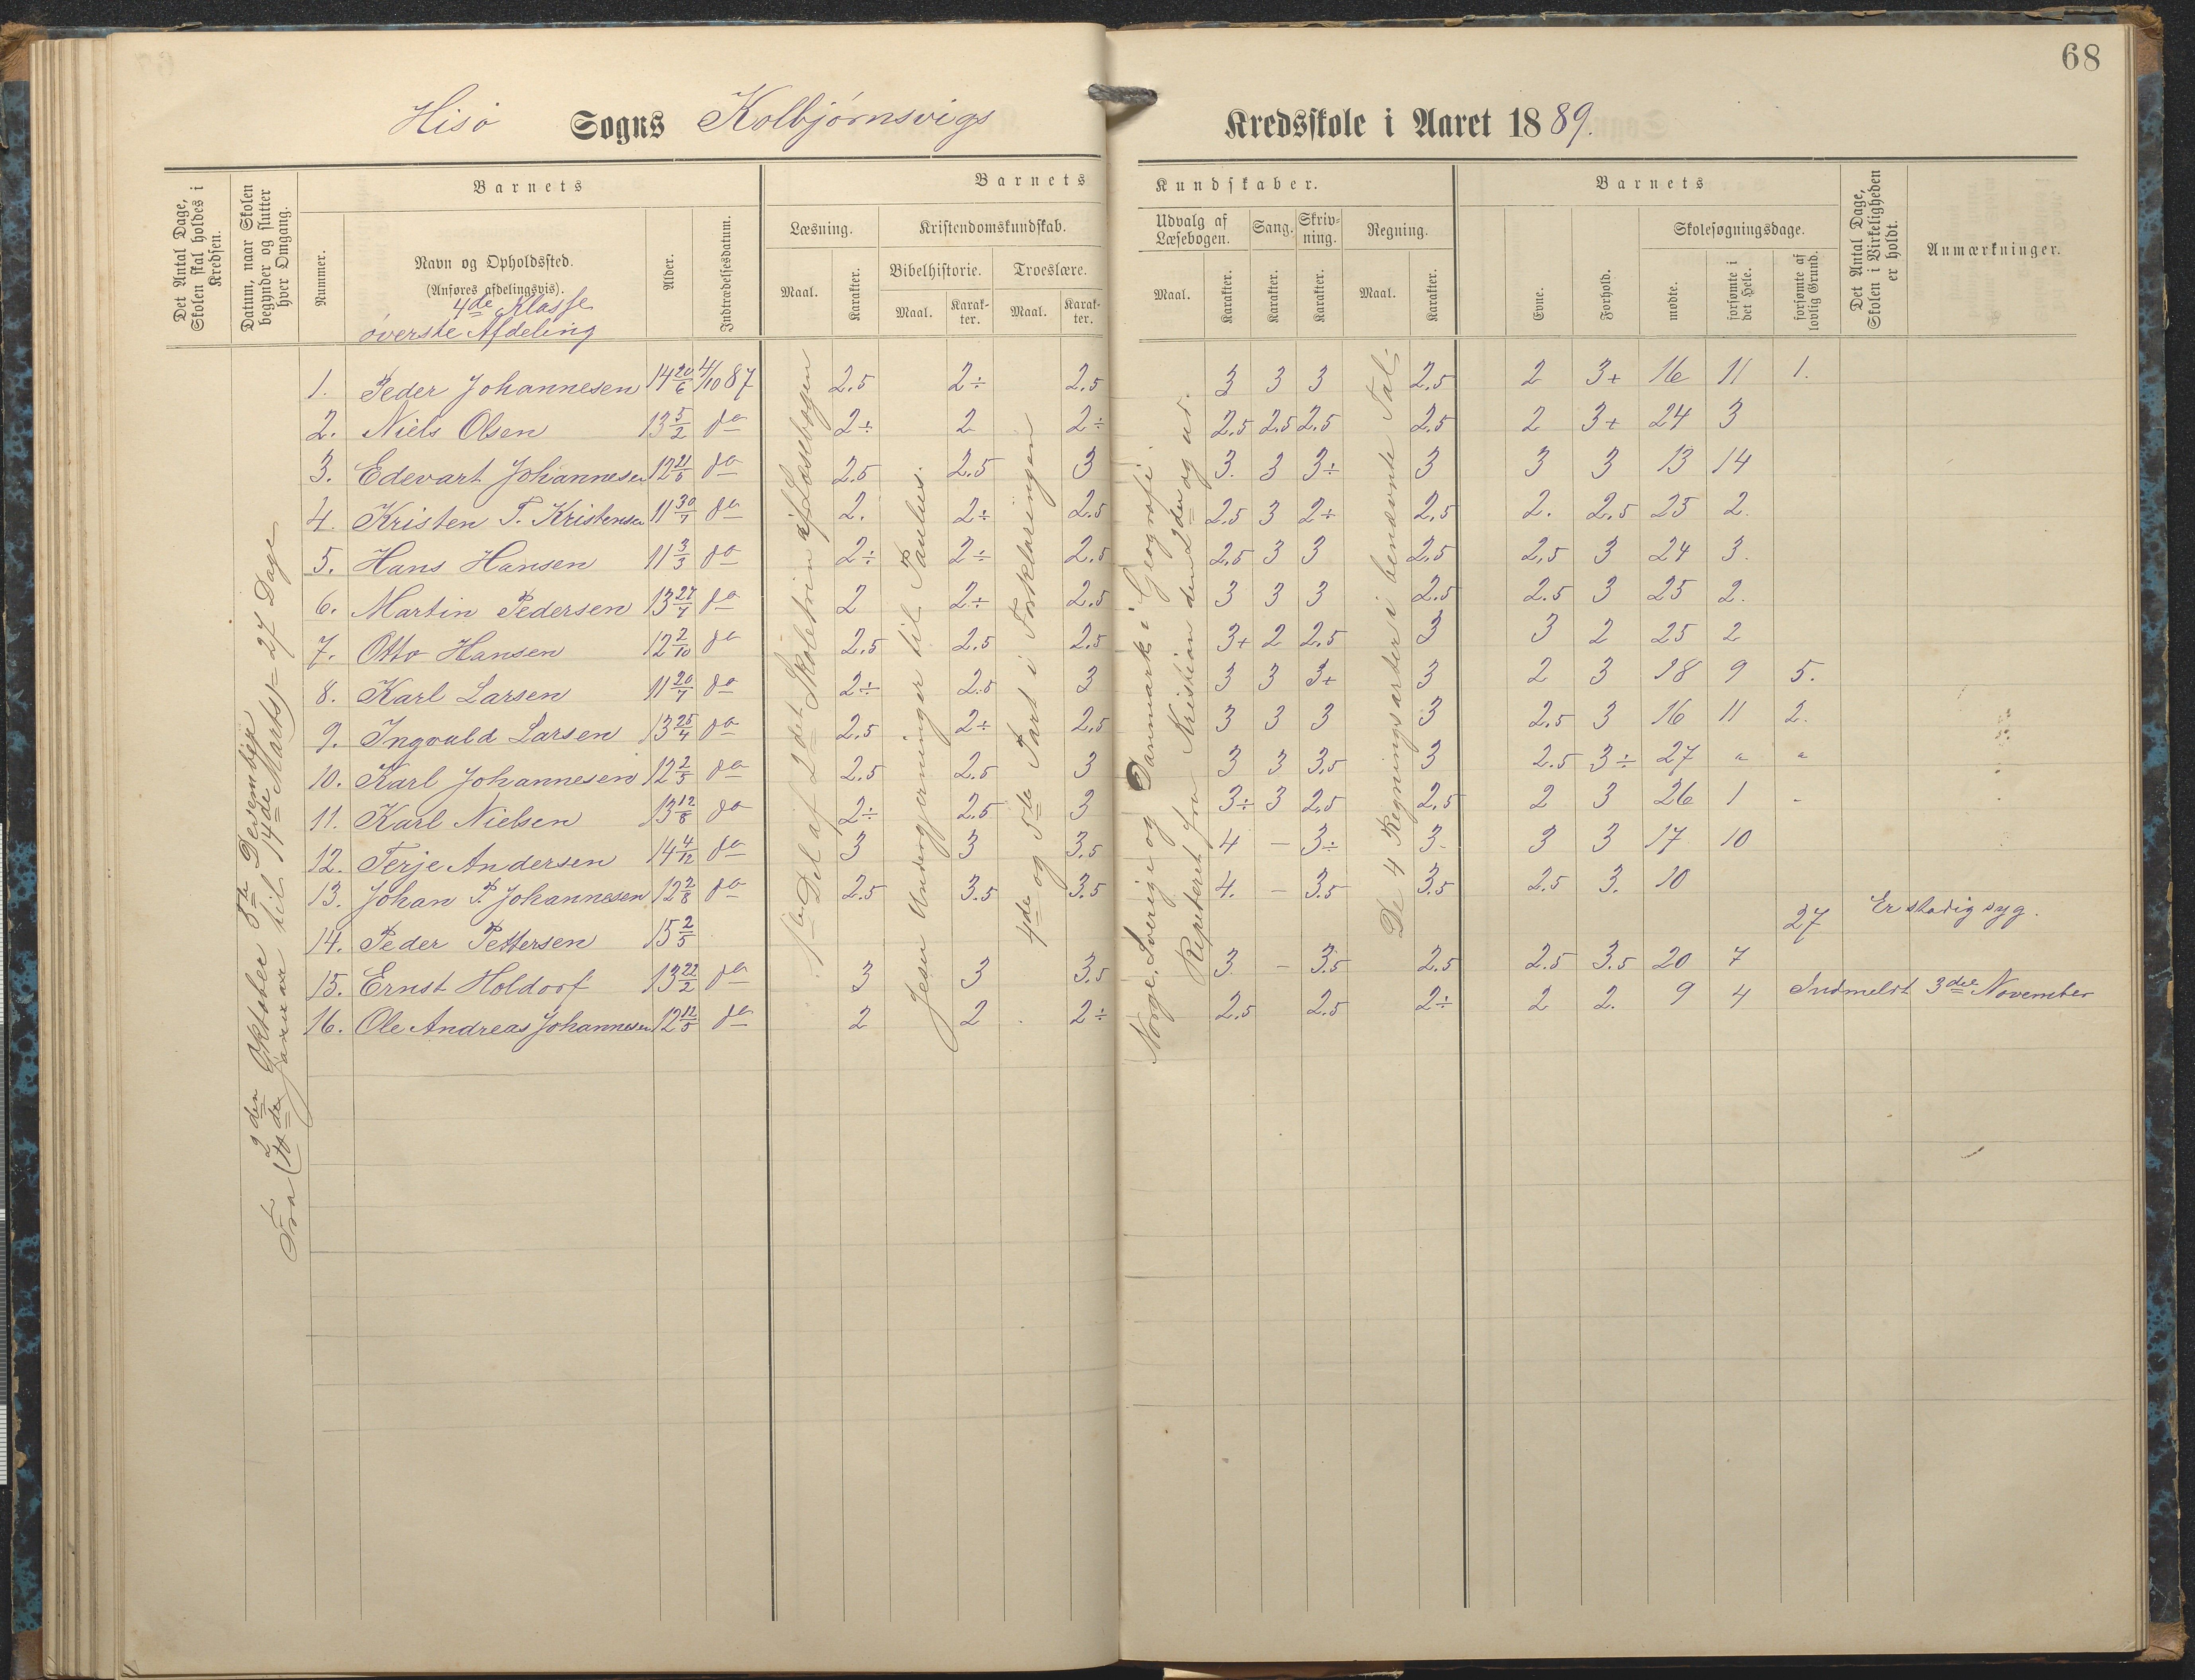 68
Hisö Sogns Kolbjørnsvigs Kredsskole i Aaret 1889.
Det Antal Dage, Skolen skal holdes i Kredsen.
Datum, naar Skolen begynder og slutter hver Omgang.
Barnets
Nummer.
Navn og Opholdssted.
(Anføres afdelingsvis).
4de Klasse
øverste Afdeling
Alder.
Indtrædelsesdatum.
Barnets Kundskaber.
Læsning.
Maal.
Karakter.
Kristendomskundskab.
Bibelhistorie.
Maal.
Karakter.
Troeslære.
Maal.
Karakter.
Udvalg af Læsebogen.
Maal.
Karakter.
Sang.
Karakter.
Skrivning.
Karakter.
Regning.
Maal.
Karakter.
Barnets
Evne.
Forhold.
Skolesøgningsdage.
mødte.
forsømte i det Hele.
forsømte af lovlig Grund.
Det Antal Dage, Skolen i Virkeligheden er holdt.
Anmærkninger.
1. Peder Johannesen 14 20/6 4/10 87 2.5 2÷ 2.5 3 3 3 2.5 2 3+ 16 11 1.
2. Niels Olsen 13 5/2 do 2÷ 2 2÷ 2.5 2.5 2.5 2.5 2 3+ 24 3
3. Edevart Johannesen 12 21/6 do 2.5 2.5 3 3. 3 3÷ 3 3 3 13 14
4. Kristen T. Kristensen 11 30/7 do 2. 2÷ 2.5 2.5 3 2÷ 2.5 2. 2.5 25 2.
5. Hans Hansen 11 3/3 do 2÷ 2÷ 2.5 2.5 3 3 2.5 2.5 3 24 3.
6. Martin Pedersen 13 27/7 do 2 2÷ 2.5 3 3 3 2.5 2.5 3 25 2.
7. Otto Hansen 12 2/10 do 2.5 2.5 2.5 3+ 2 2.5 3 3 2 25 2
8. Karl Larsen 11 20/7 do 2÷ 2.5 3 3 3 3+ 3 2 3 18 9 5.
9. Ingvald Larsen 13 25/4 do 2.5 2÷ 2.5 3 3 3 3 2.5 3 16 11 2.
10. Karl Johannesen 12 2/5 do 2.5 2.5 3 3 3 3.5 3 2.5 3÷ 27 " "
11. Karl Nielsen 13 12/8 do 2÷ 2.5 3 3÷ 3 2.5 2.5 2 3 26 1 -
12. Terje Andersen 14 4/12 do 3 3 3.5 4 — 3÷ 3- 3 3 17 10
13. Johan P. Johannesen 12 2/8 do 2.5 3.5 3.5 4. — 3.5 3.5 2.5 3. 10
14. Peder Pettersen 15 2/5 27 Er stadig syg.
15. Ernst Holdorf 13 22/2 do 3 3 3.5 3 — 3.5 2.5 2.5 3.5 20 7
16. Ole Andreas Johannesen 12 12/5 do 2 2 2÷ 2.5 2.5 2÷ 2 2. 9 4 Indmeldt 3die November
Fra 2den Oktober 5te Desember
Januar til 14de Marts = 27 Dage
1ste Del af 2det Skoletrin af Læsebogen
Jesu Undergjerninger til Paulus.
4de og 5te Part i Forklaringen
Norge, Sverige og Danmark i Geografi.
Repeteret fra Kristian den 2den og ud.
De 4 Regningsarter i benævnte Tal.